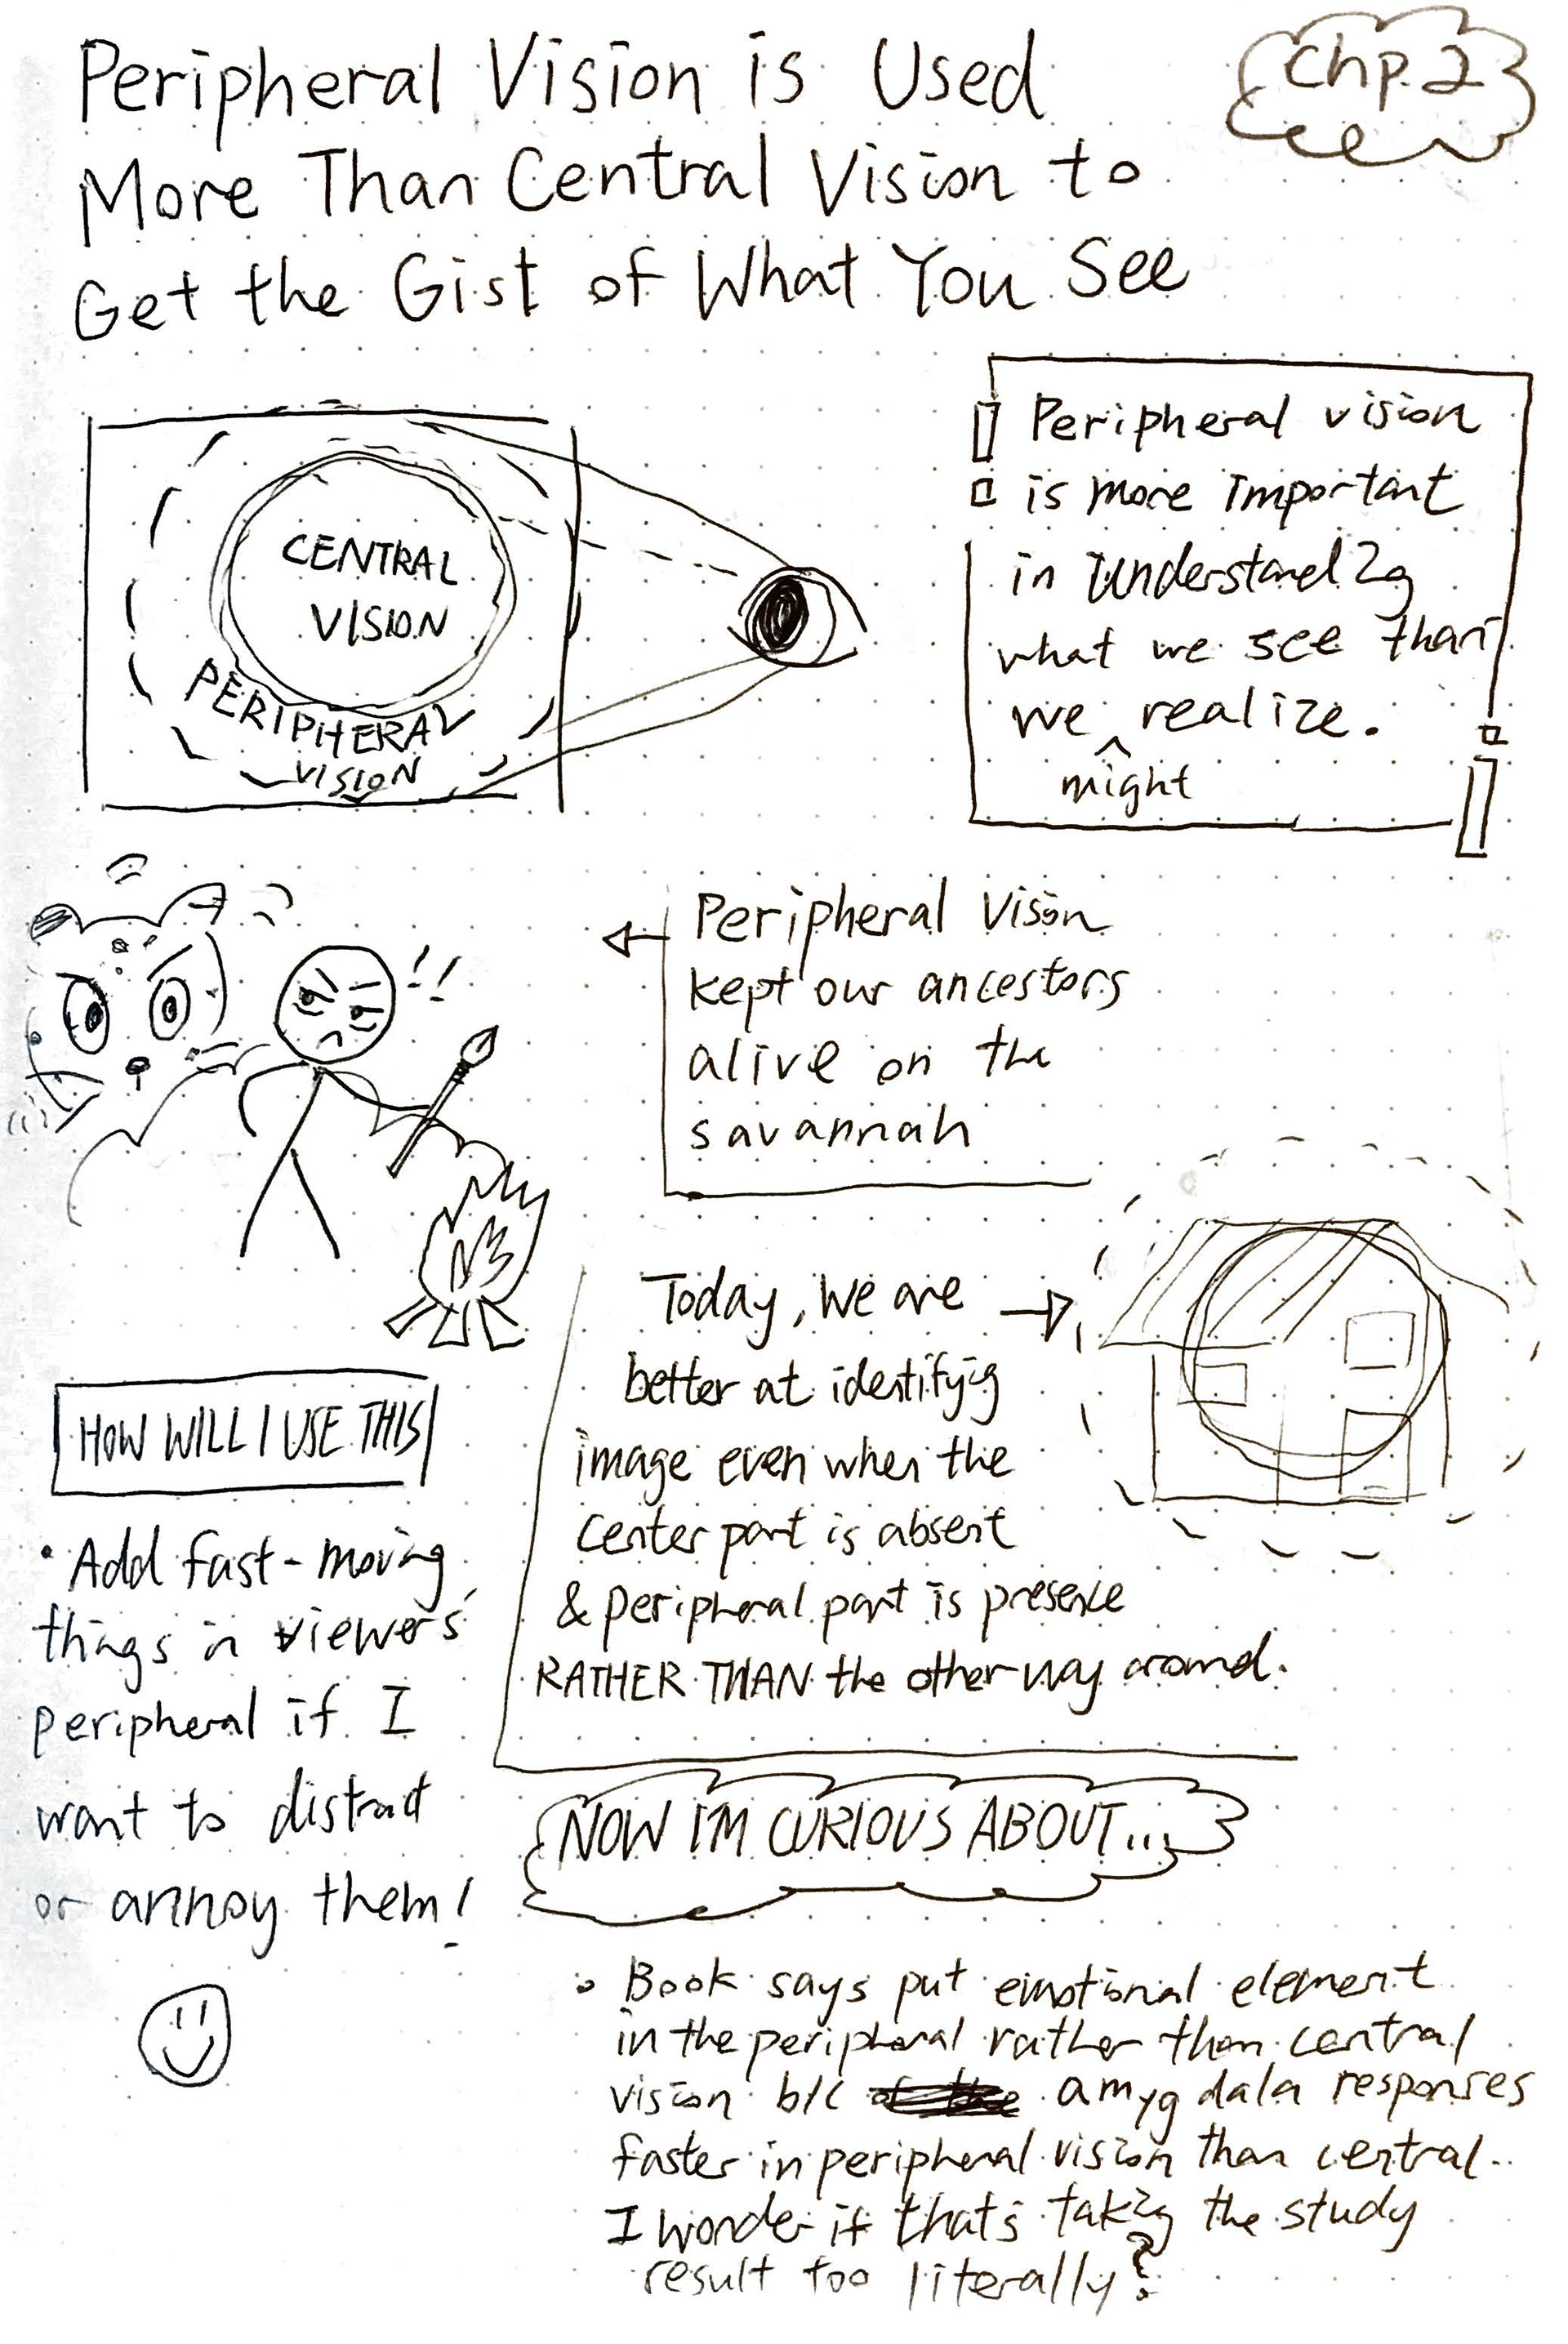 Peripheral Vision is Used
More Than Central Vision to
Get the Gist of What You See
Chp. 2
CENTRAL
VISION
PERIPHERAL
VISION
Peripheral vision
is more important
in understanding
what we see than
we realize.
might
!!
Peripheral Vision
kept our ancestors
alive on the
savannah
Today, we are
better at identifying
image even when the
center part is absent
& peripheral part is presence
RATHER THAN the other way around.
HOW WILL I USE THIS
• Add fast-moving
things in viewers'
peripheral if I
want to distract
or annoy them!
NOW I'M CURIOUS ABOUT...
• Book says put emotional element
in the peripheral rather than central
vision b/c amygdala responses
faster in peripheral vision than central..
I wonder if that's taking the study
result too literally?